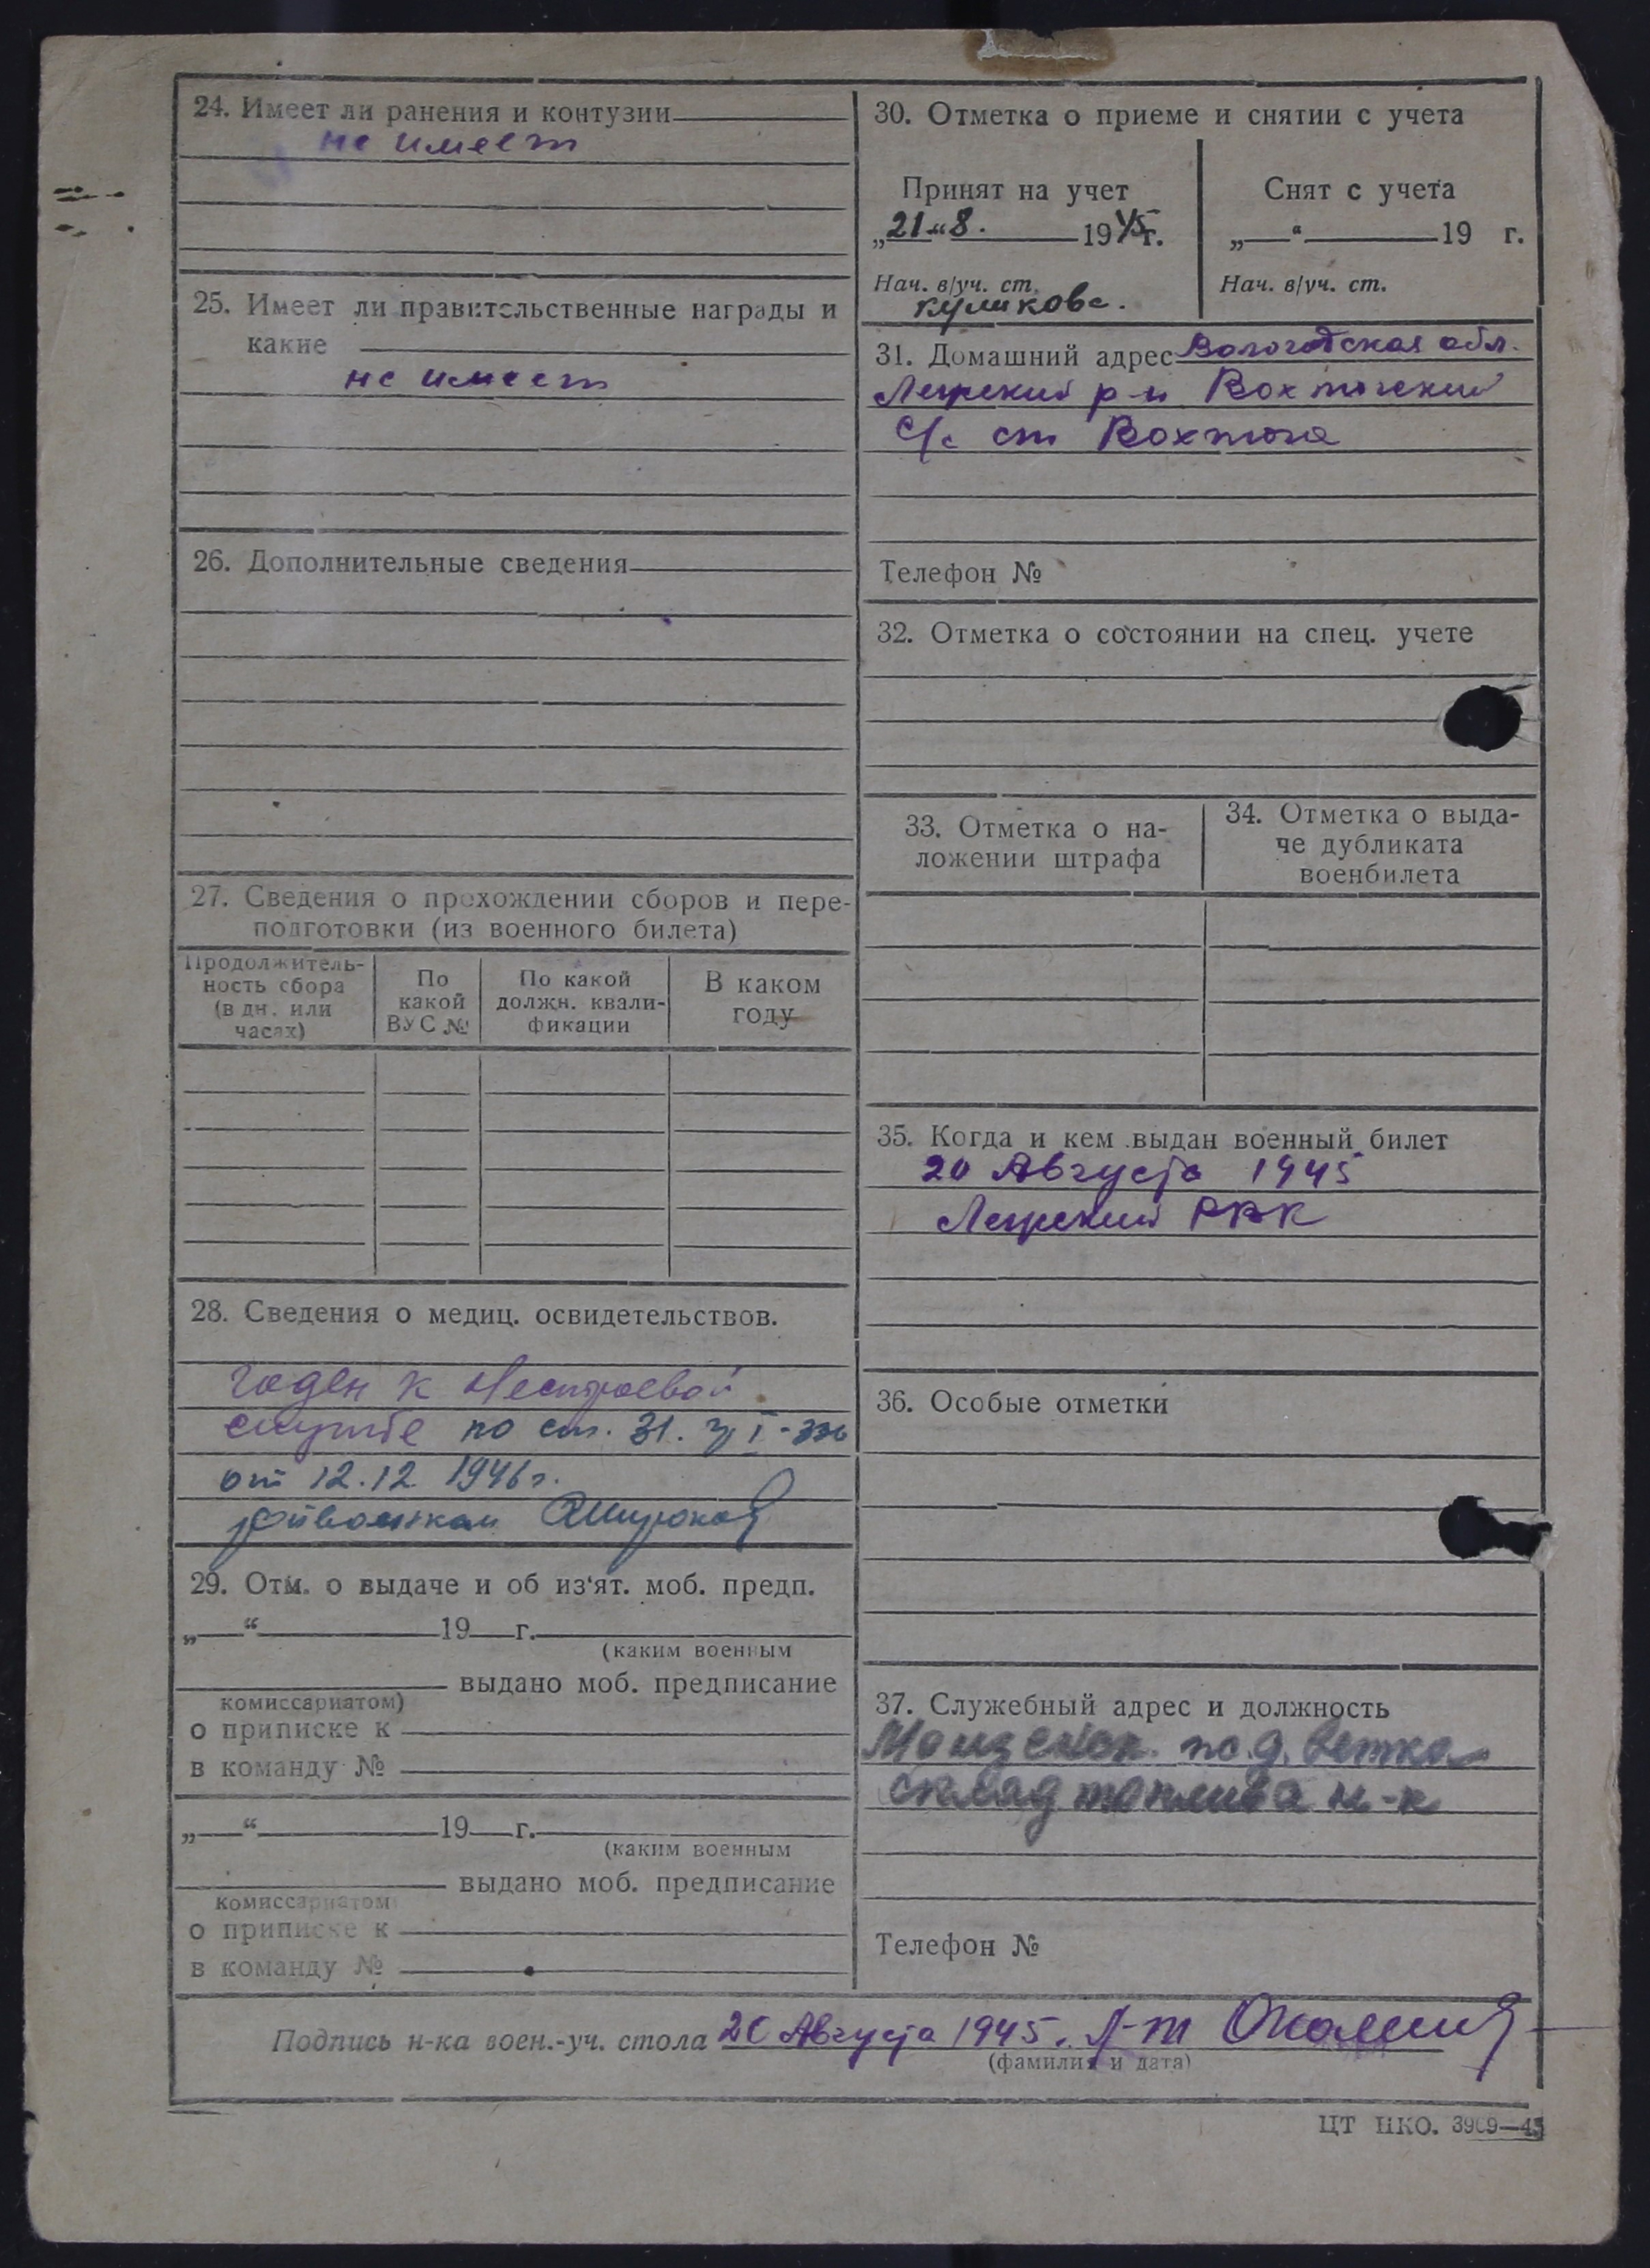 24. Имеет ли ранения и контузии
не имеет
25. Имеет ли правительственные награды и
какие
не имеет
26. Дополнительные сведения
27. Сведения о прохождении сборов и пере-
подготовки (из военного билета)
Продолжитель-
ность сбора
(в дн. или
часах)
По
какой
ВУС №
По какой
должн. квали-
фикации
В каком
году
28. Сведения о медиц. освидетельствов.
годен к нестроевой
службе по ст. 31. гр I-
от 12.12 1946г.
райвоенком
29. Отм. о выдаче и об из‘ят. моб. предп.
„ “ 19 г.
(каким военным
выдано моб. предписание
комиссариатом)
о приписке к
в команду №
„ “ 19 г.
(каким военным
выдано моб. предписание
комиссариатом
о приписке к
в команду №
30. Отметка о приеме и снятии с учета
Принят на учет
„21“ 8. 1945г.
Нач. в/уч. ст.
куликова.
Снят с учета
„ “ 19 г.
Нач. в/уч. ст.
31. Домашний адрес Вологодская обл.
Лежский р-н Вохтожский
с/с ст Вохтога
Телефон №
32. Отметка о состоянии на спец. учете
33. Отметка о на-
ложении штрафа
34. Отметка о выда-
че дубликата
военбилета
35. Когда и кем выдан военный билет
20 Августа 1945
Лежский РВК
36. Особые отметки
37. Служебный адрес и должность
Монзенск. ж.д. ветка
склад топлива н-к
Телефон №
Подпись н-ка воен.-уч. стола 20 Августа 1945. Л-т
(фамилия и дата)
ЦТ НКО. 3909—45